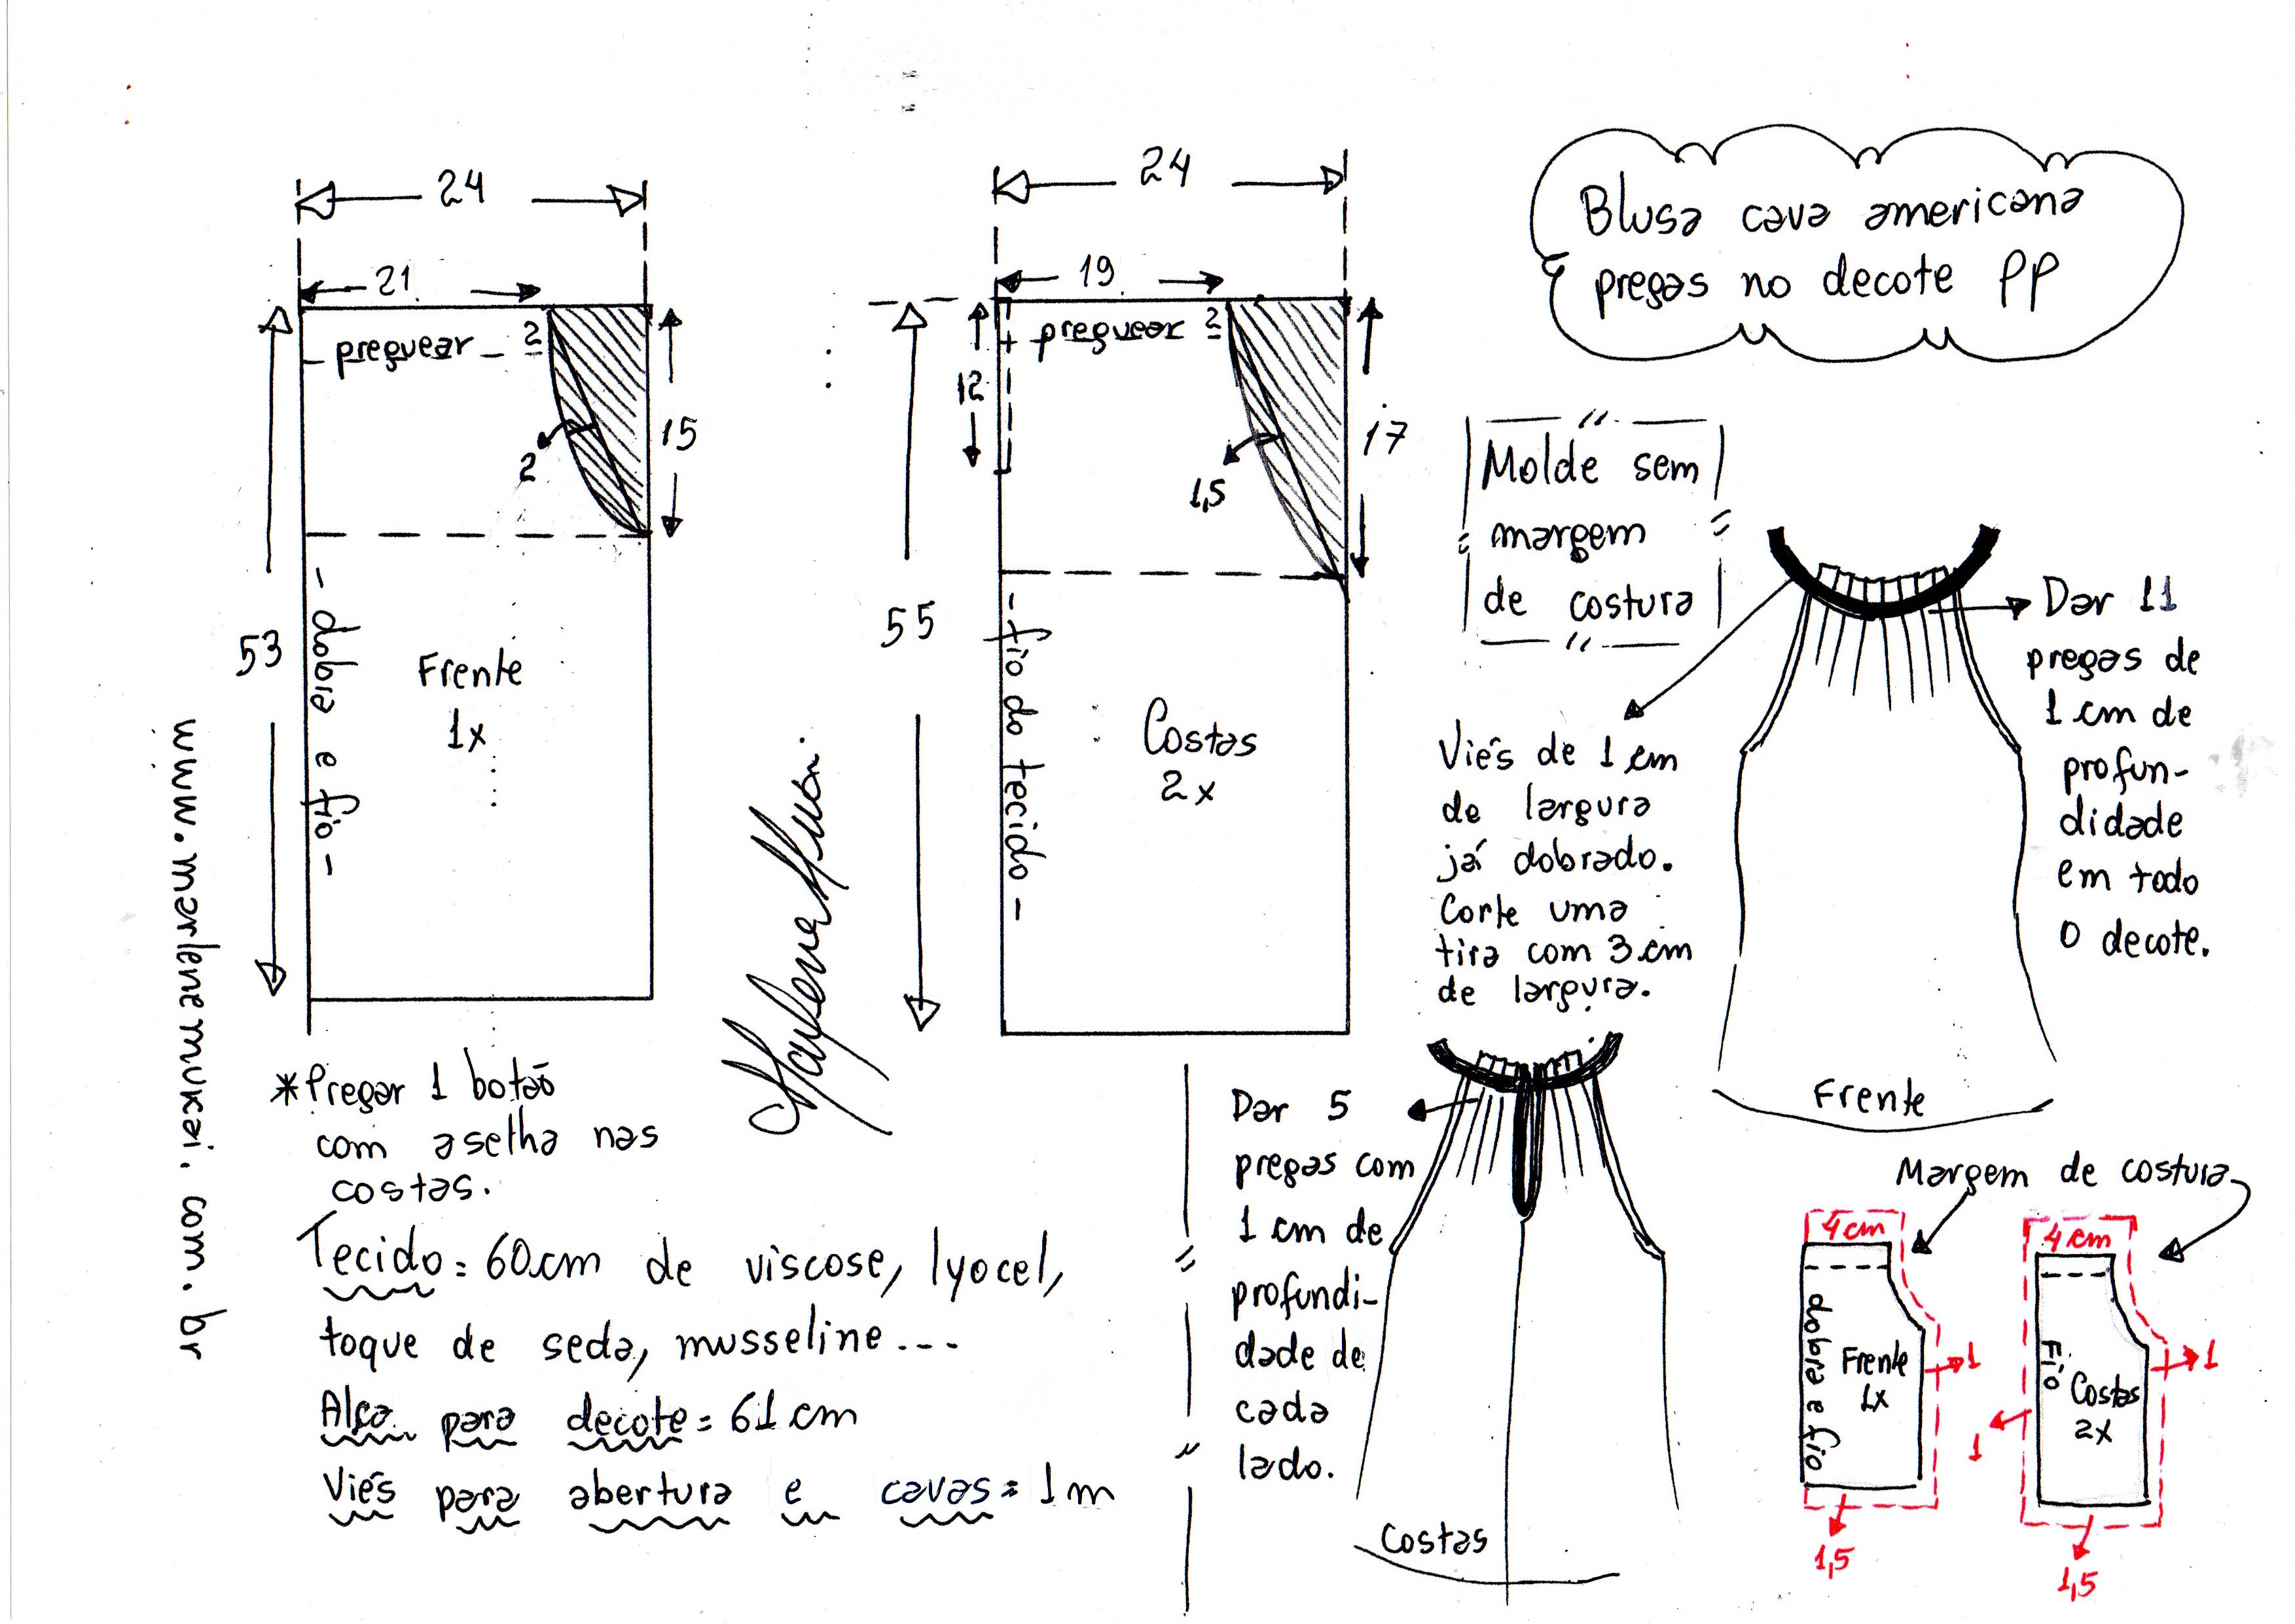 Blusa cava americana
pregas no decote PP
24
21
- preguear - 2
2
15
53
- dobra e fio -
Frente
1x
24
19
preguear 2
12
1,5
17
55
- fio do tecido -
Costas
2x
Molde sem
margem
de costura
Dar 11
pregas de
1 cm de
profun-
didade
em todo
o decote.
Viés de 1 cm
de largura
já dobrado.
Corte uma
tira com 3 cm
de largura.
Frente
www.marlenemukai.com.br
Marlene Mukai
* Pregar 1 botão
com aselha nas
costas.
Tecido = 60cm de viscose, lyocel,
toque de seda, musseline...
Alça para decote = 61 cm
Viés para abertura e cavas = 1 m
Dar 5
pregas com
1 cm de
profundi-
dade de
cada
lado.
Costas
Margem de costura
4 cm
dobra e fio
Frente
1x
1
1,5
4 cm
Fio
Costas
2x
1
1
1,5